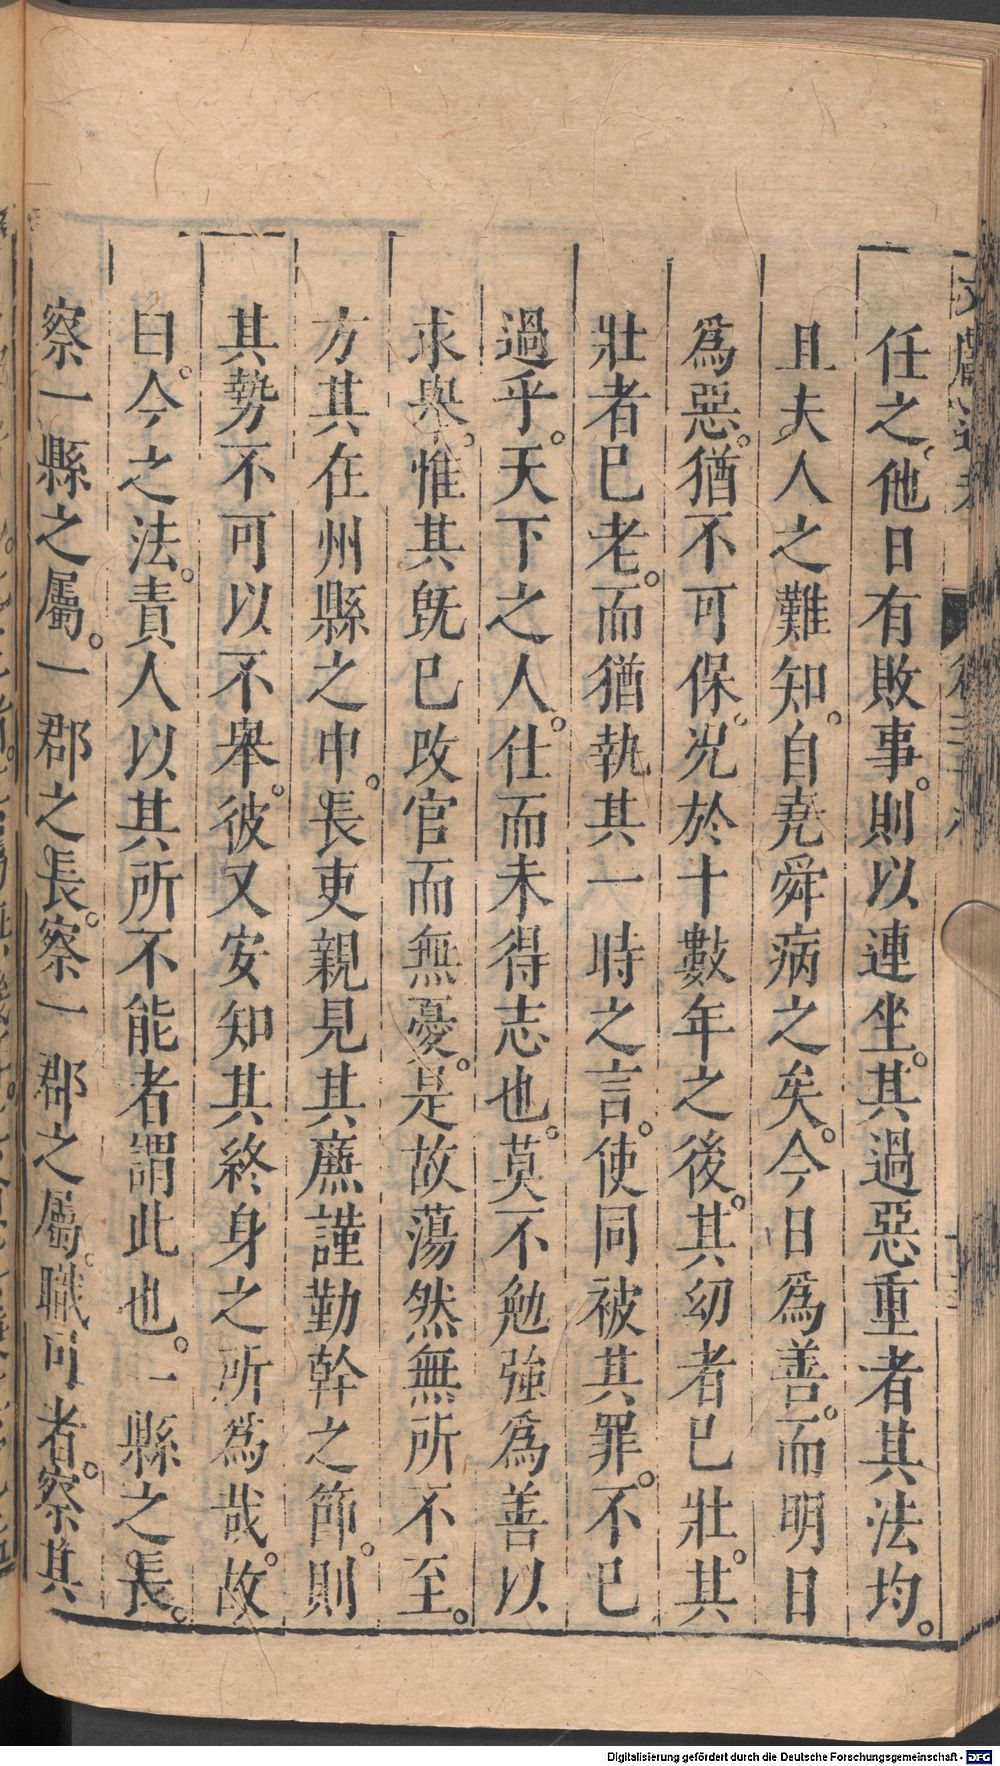 任之他日有敗事。則以連坐。其過惡重者其法均。
且夫人之難知。自堯舜病之矣。今日爲善。而明日
爲惡。猶不可保。况於十數年之後。其幼者已壯。其
壯者已老。而猶執其一時之言。使同被其罪。不已
過乎。天下之人。仕而未得志也。莫不勉強爲善以
求舉。惟其旣已改官而無憂。是故蕩然無所不至。
方其在州縣之中。長吏親見其廉謹勤幹之節。則
其勢不可以不舉。彼又安知其終身之所爲哉。故
曰。今之法。責人以其所不能者謂此也。一縣之長。
察一縣之屬。一郡之長。察一郡之屬。職司者。察其
Digitalisierung gefördert durch die Deutsche Forschungsgemeinschaft - DFG